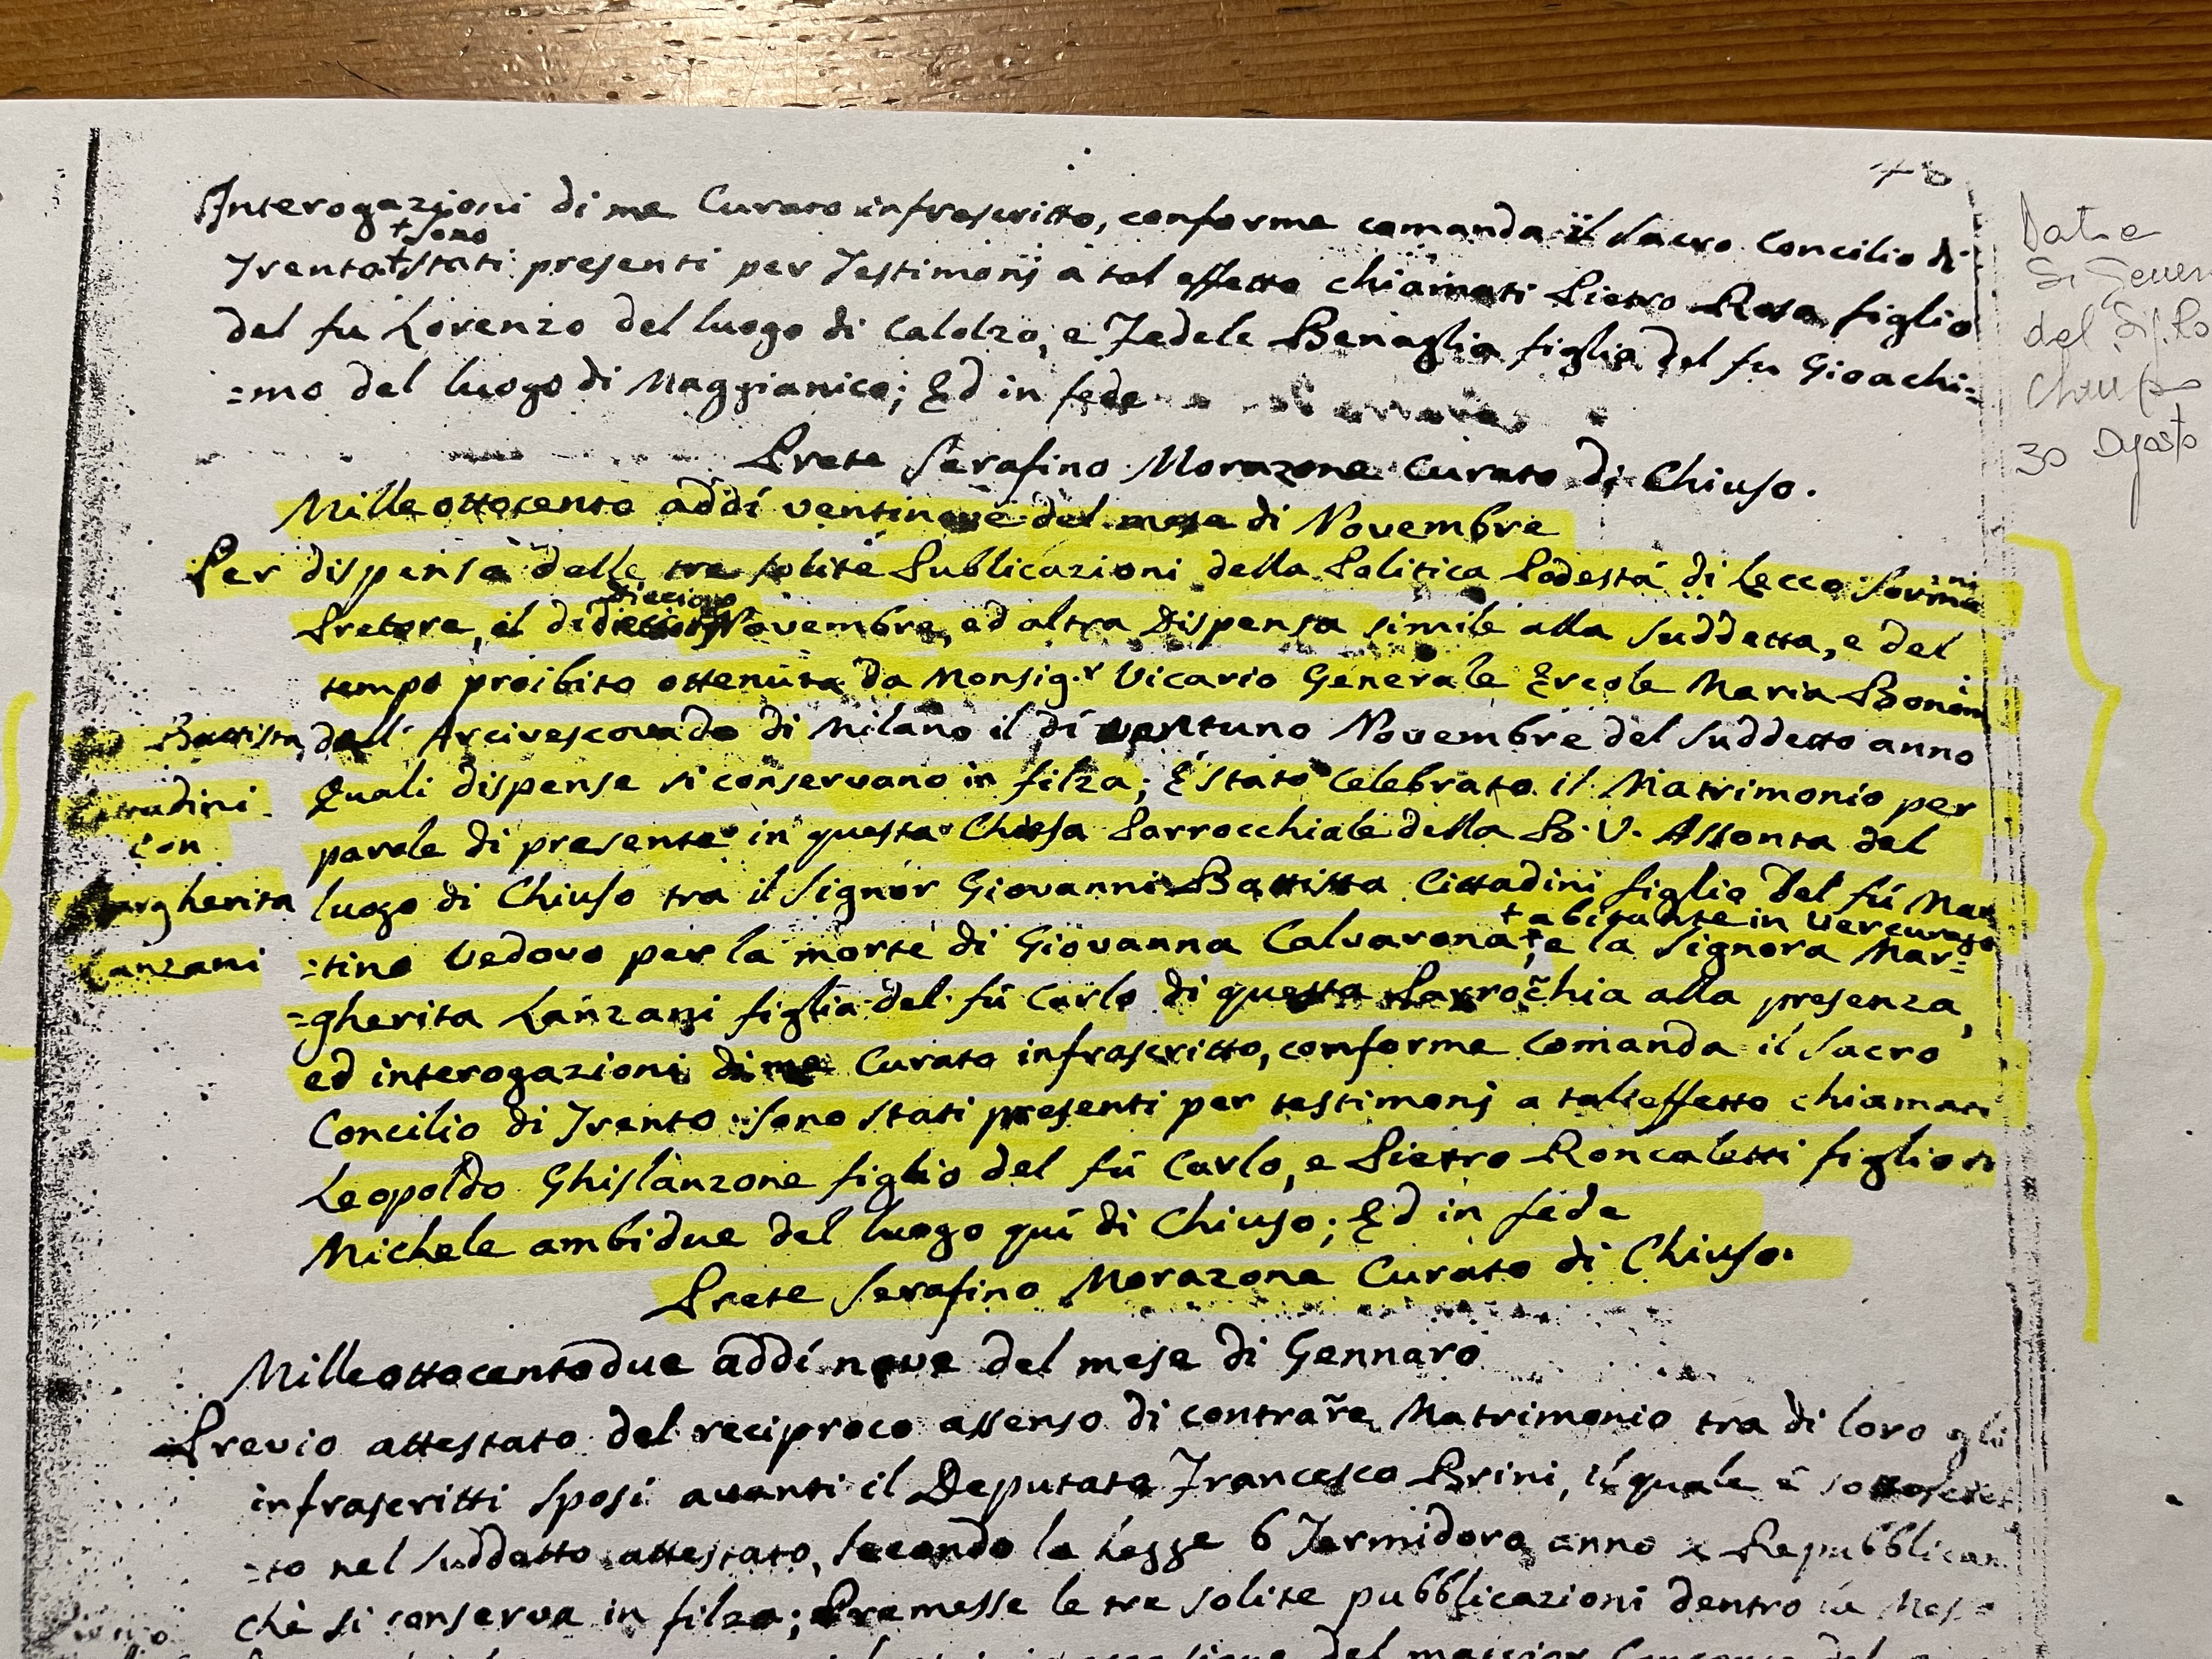 Interogazioni di me Curato infrascritto, conforme comanda il Sacro Concilio di
+ sono
Trento + stati presenti per Testimonj a tal effetto chiamati Pietro Rosa figlio
del fu Lorenzo del luogo di Calolzo, e Fedele Benaglia figlia del fu Gioachi=
=mo del luogo di Maggianico; Ed in fede
Prete Serafino Morazone Curato di Chiuso.
Milleottocento addí ventinove del mese di Novembre
Per dispensa delle tre solite Publicazioni della Politica Podestá di Lecco
Pretore, il dí Novembre, ed altra Dispensa simile alla suddetta, e del
tempo proibito ottenuta da Monsig.r Vicario Generale Ercole Maria Bonom
dell' Arcivescovado di Milano il dí ventuno Novembre del suddetto anno
Quali dispense si conservano in filza; É stato Celebrato il Matrimonio per
parole di presente in questa Chiesa Parrocchiale della B. V. Assonta del
luogo di Chiuso tra il Signor Giovanni Battista Cittadini figlio del fú Mar
+ abitante in Vercurago
=tino Vedovo per la morte di Giovanna Calvarona +, e la Signora Mar=
=gherita Lanzani figlia del fú Carlo di questa Parrochia alla presenza,
ed interogazioni di me Curato infrascritto, conforme Comanda il Sacro
Concilio di Trento sono stati presenti per testimonj a tal effetto chiamati
Leopoldo Ghislanzone figlio del fú Carlo, e Pietro Roncaletti figlio di
Michele ambidue del luogo quí di Chiuso; Ed in fede
Prete Serafino Morazone Curato di Chiuso.
Battista
Cittadini
con
Margherita
Lanzani
Milleottocentodue addí nove del mese di Gennaro
Previo attestato del reciproco assenso di contrare Matrimonio tra di loro gli
infrascritti Sposi avanti il Deputato Francesco Brini, il quale é sottoscrit
=to nel suddetto attestato, secondo la Legge 6 Termidoro anno Repubblican
chè si conserva in filza; Premesse le tre solite pubblicazioni dentro la
30 Agosto